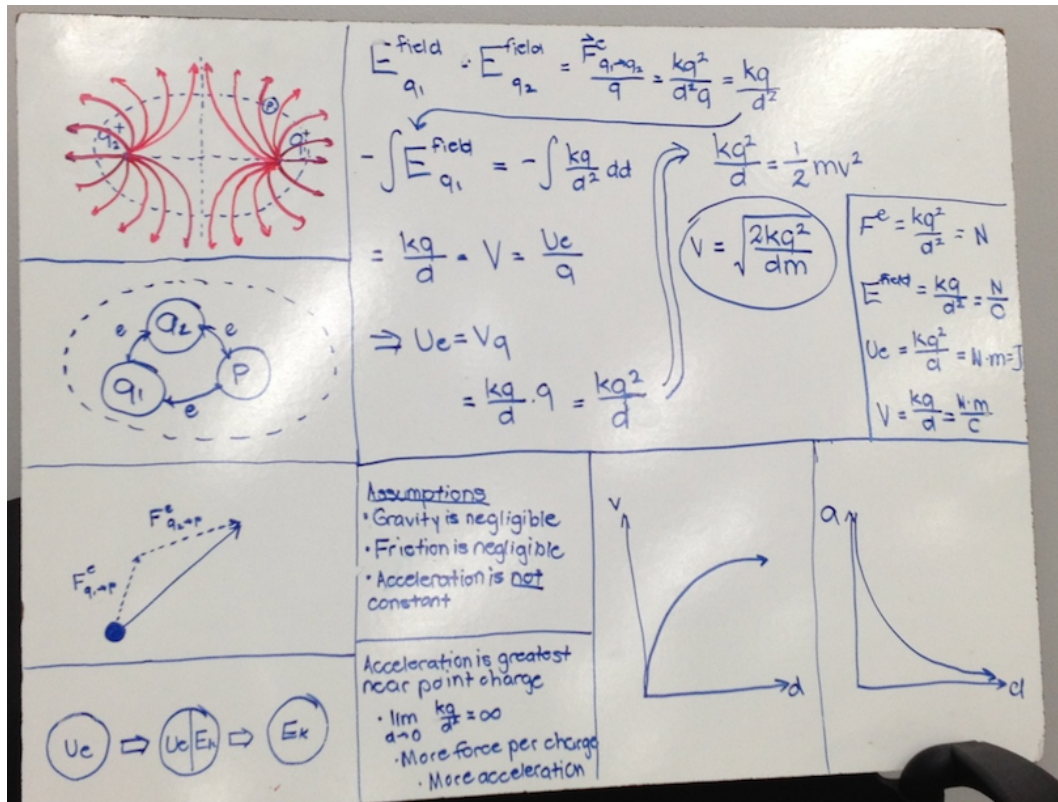 q₂⁺
P
q₁⁺
E^field_q₁ = E^field_q₂ = F⃗^e_q₁→q₂ / q = kq²/d²q = kq/d²
-∫E^field_q₁ = -∫ kq/d² dd
= kq/d = V = Ue/q
⇒ Ue = Vq
= kq/d · q = kq²/d
kq²/d = 1/2 mv²
V = √(2kq²/dm)
F^e = kq²/d² = N
E^field = kq/d² = N/C
Ue = kq²/d = N·m = J
V = kq/d = N·m/C
q₂
e
e
q₁
P
e
F^e_q₂→P
F^e_q₁→P
Ue ⇒ Ue|Ek ⇒ Ek
Assumptions
• Gravity is negligible
• Friction is negligible
• Acceleration is not
constant
Acceleration is greatest
near point charge
• lim d→0 kq/d² = ∞
• More force per charge
• More acceleration
v
d
a
d